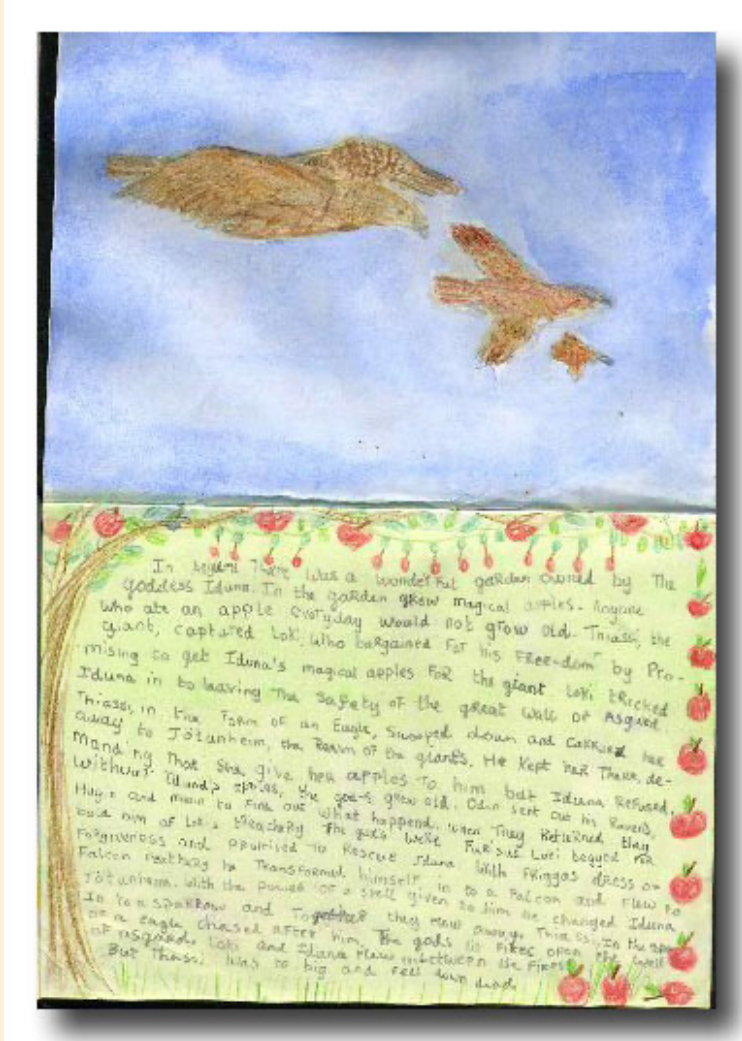 In Asgard There was a wonderful garden owned by The
goddess Iduna. In the garden grew magical apples. Anyone
who ate an apple everyday would not grow old. Thiassi, the
giant, captured Loki, who bargained for his Free-dom by Pro-
mising to get Iduna's magical apples for the giant Loki tricked
Iduna in to leaving The safety of the great wall of Asgard
Thiassi, in the form of an Eagle, swooped down and carried her
away to Jötunheim, the Realm of the giants. He kept her There, de-
manding That She give her apples to him but Iduna Refused,
without Iduna's apples, the gods grew old. Odin sent out his Ravens,
Hugin and munin to Find out what happend. when They Returned they
told him of Loki's treachery The gods were Furious Loki begged for
Forgiveness and promised to Rescue Iduna with Friggas dress of
Falcon feathers he Transformed himself in to a Falcon and flew to
Jötunheim. with the power of a spell given to him he changed Iduna
In to a sparrow and Together they flew away. Thiassi, In the
of a eagle chased after him. The gods lit fires upon the wall
of asgard. Loki and Iduna flew inbetween the Fires
But Thassi was to big and fell down dead.